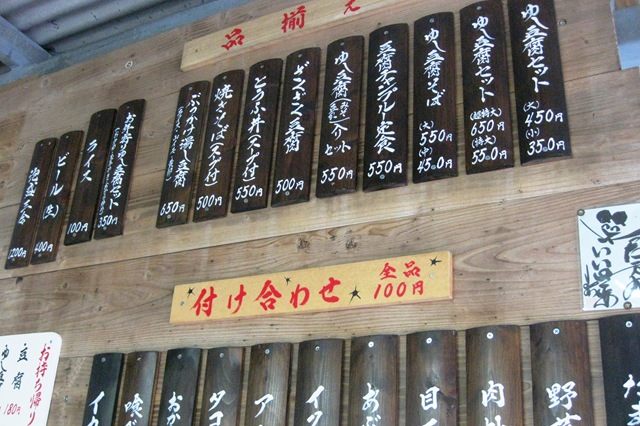 品揃え
ゆし豆腐セット
(大) 450円
(小) 350円
ゆし豆腐セット
(超特大) 650円
(特大) 550円
ゆし豆腐そば
(大) 550円
(中) 450円
豆腐チャンプルー定食
550円
セット
550円
豆腐
500円
とうふ丼(スープ付)
550円
焼きそば(スープ付)
500円
ぶっかけ湯し豆腐
650円
お弁当ゆし豆腐セット
350円
ライス
100円
ビール(生)
400円
1200円
付け合わせ
全品
100円
野菜
肉
目
あ
イワ
ア
タコ
おか
イカ
お持ち帰り
豆腐
ゆし
180円